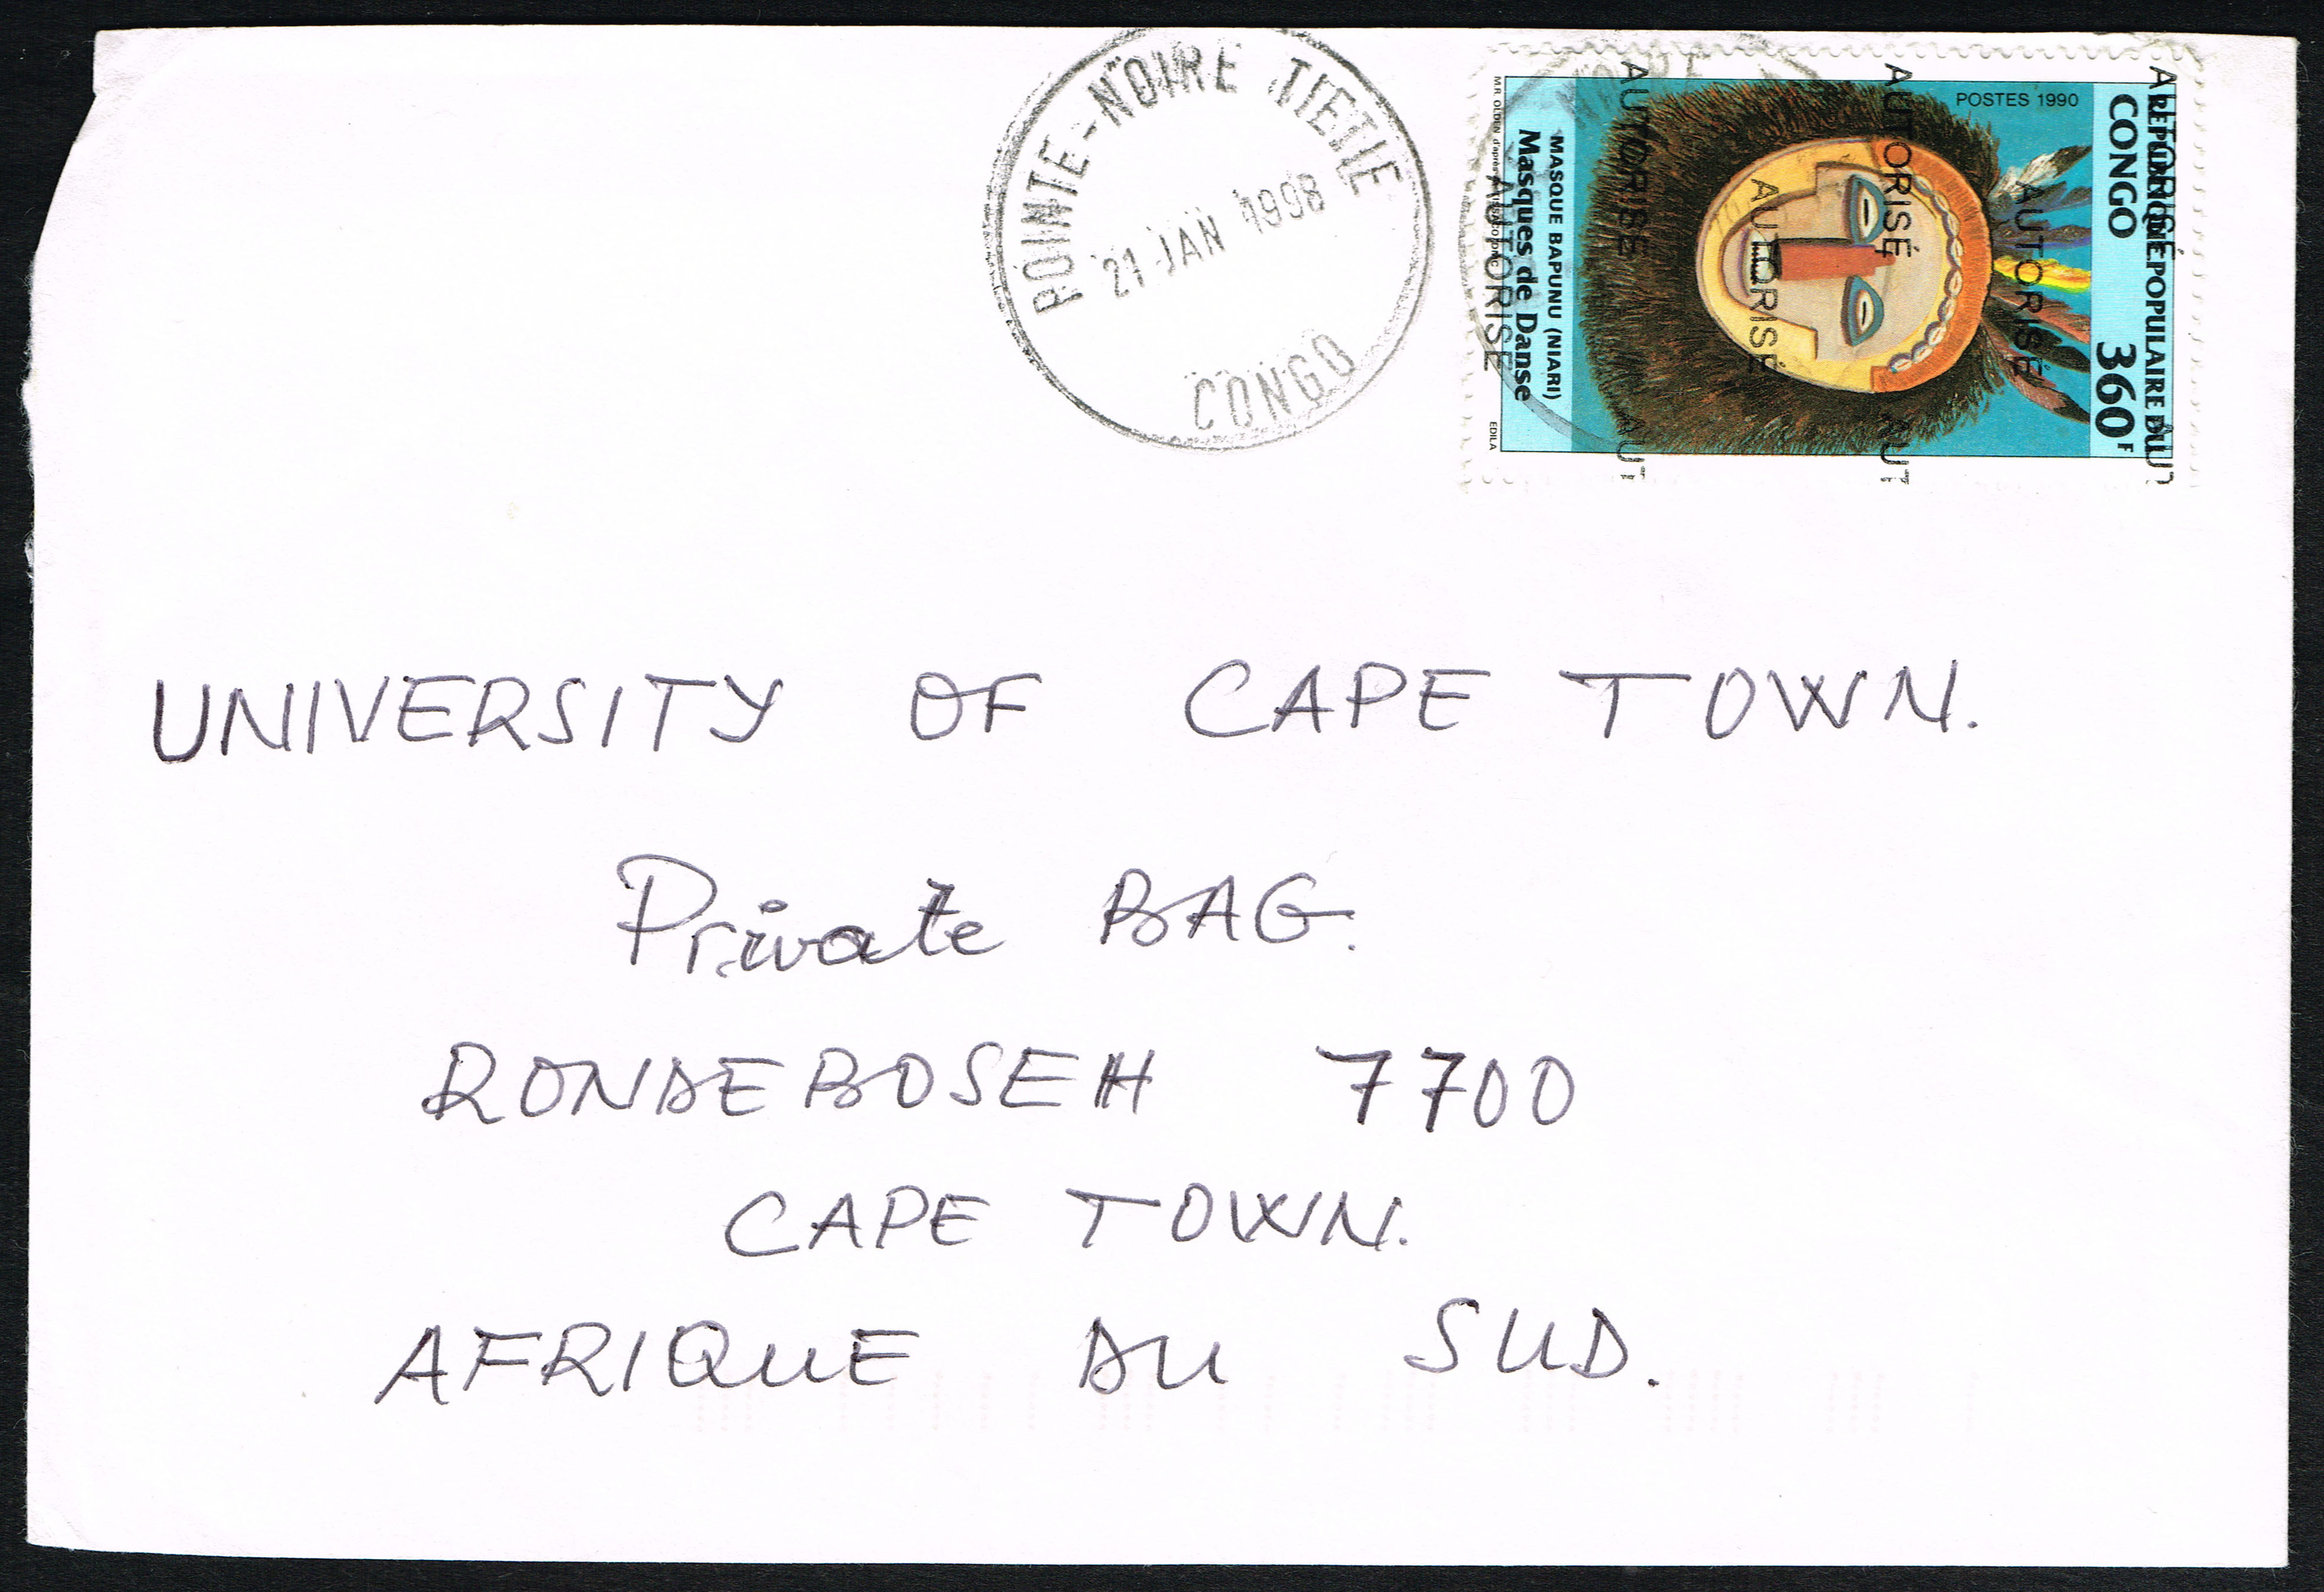 POINTE-NOIRE TIETIE
21 JAN 1998
CONGO
RÉPUBLIQUE POPULAIRE DU
CONGO 360F
POSTES 1990
MASQUE BAPUNU (NIARI)
Masques de Danse
M.R. OLDEN d'après
EDILA
AUTORISÉ
AUTORISÉ
AUTORISÉ
AUTORISÉ
AUTORISÉ
AUTORISÉ
AUT
AUT
AUT
UNIVERSITY OF CAPE TOWN.
Private BAG.
RONDEBOSEH 7700
CAPE TOWN.
AFRIQUE DU SUD.